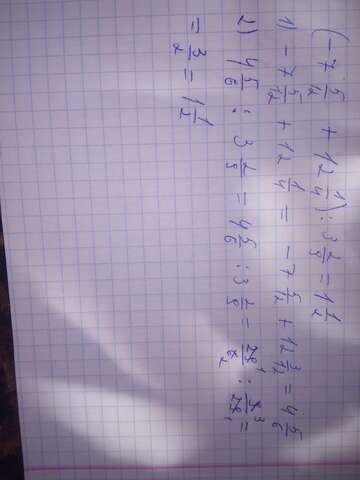 (-7 5/12 + 12 1/4) : 3 2/9 = 1 1/2
1) -7 5/12 + 12 1/4 = -7 5/12 + 12 3/12 = 4 5/6
2) 4 5/6 : 3 2/9 = 4 5/6 : 3 2/9 = 29¹/6₂ : 9³/29₁ =
= 3/2 = 1 1/2